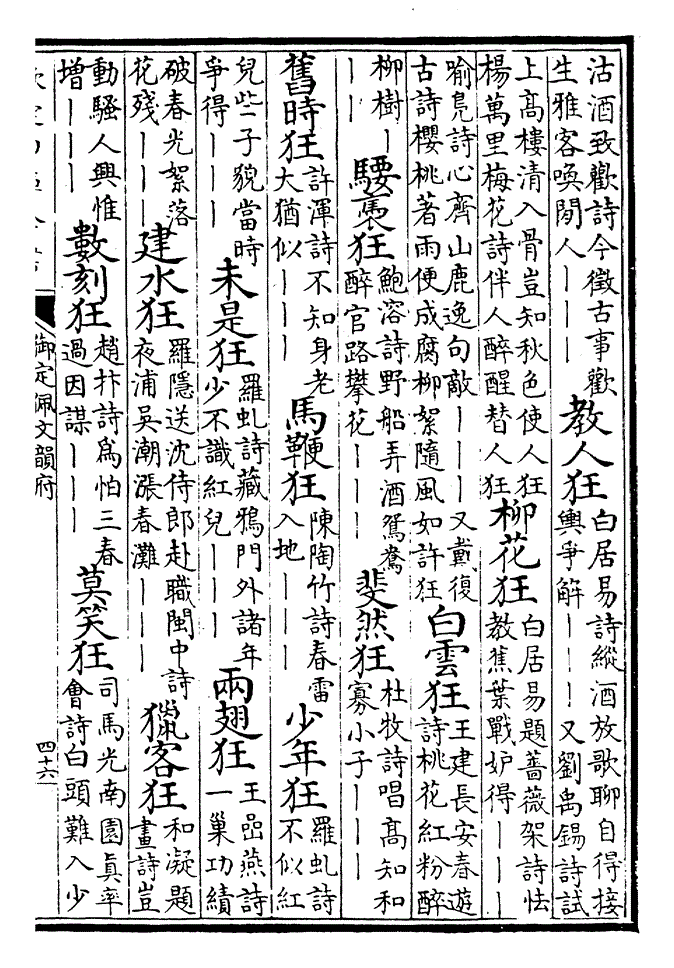 沽酒致歡詩今徵古事歡生雅客喚閒人｜｜｜教人狂白居易詩縱酒放歌聊自得接興爭解｜｜｜又劉禹錫詩試
上高樓清入骨豈知秋色使人狂楊萬里梅花詩伴人醉醒替人狂柳花狂白居易題薔薇架詩怯教蕉葉戰妒得｜｜｜
喻鳧詩心齊山鹿逸句敵｜｜｜又戴復古詩櫻桃著雨便成腐柳絮隨風如許狂白雲狂王建長安春遊詩桃花紅粉醉
柳樹｜｜｜騕褭狂鮑溶詩野船弄酒鴛鴦醉官路攀花｜｜｜斐然狂杜牧詩唱高知和寡小子｜｜｜
舊時狂許渾詩不知身老大猶似｜｜｜馬鞭狂陳陶竹詩春雷入地｜｜｜少年狂羅虬詩不似紅
兒些子貌當時爭得｜｜｜未是狂羅虬詩藏鴉門外諸年少不識紅兒｜｜｜兩翅狂王嵒燕詩一巢功績
破春光絮落花殘｜｜｜建水狂羅隱送沈侍郎赴職閩中詩夜浦吳潮漲春灘｜｜｜獵客狂和凝題畫詩豈
動騷人興惟增｜｜｜數刻狂趙抃詩爲怕三春過因謀｜｜｜莫笑狂司馬光南園眞率會詩白頭難入少
御定佩文韻府
四十六